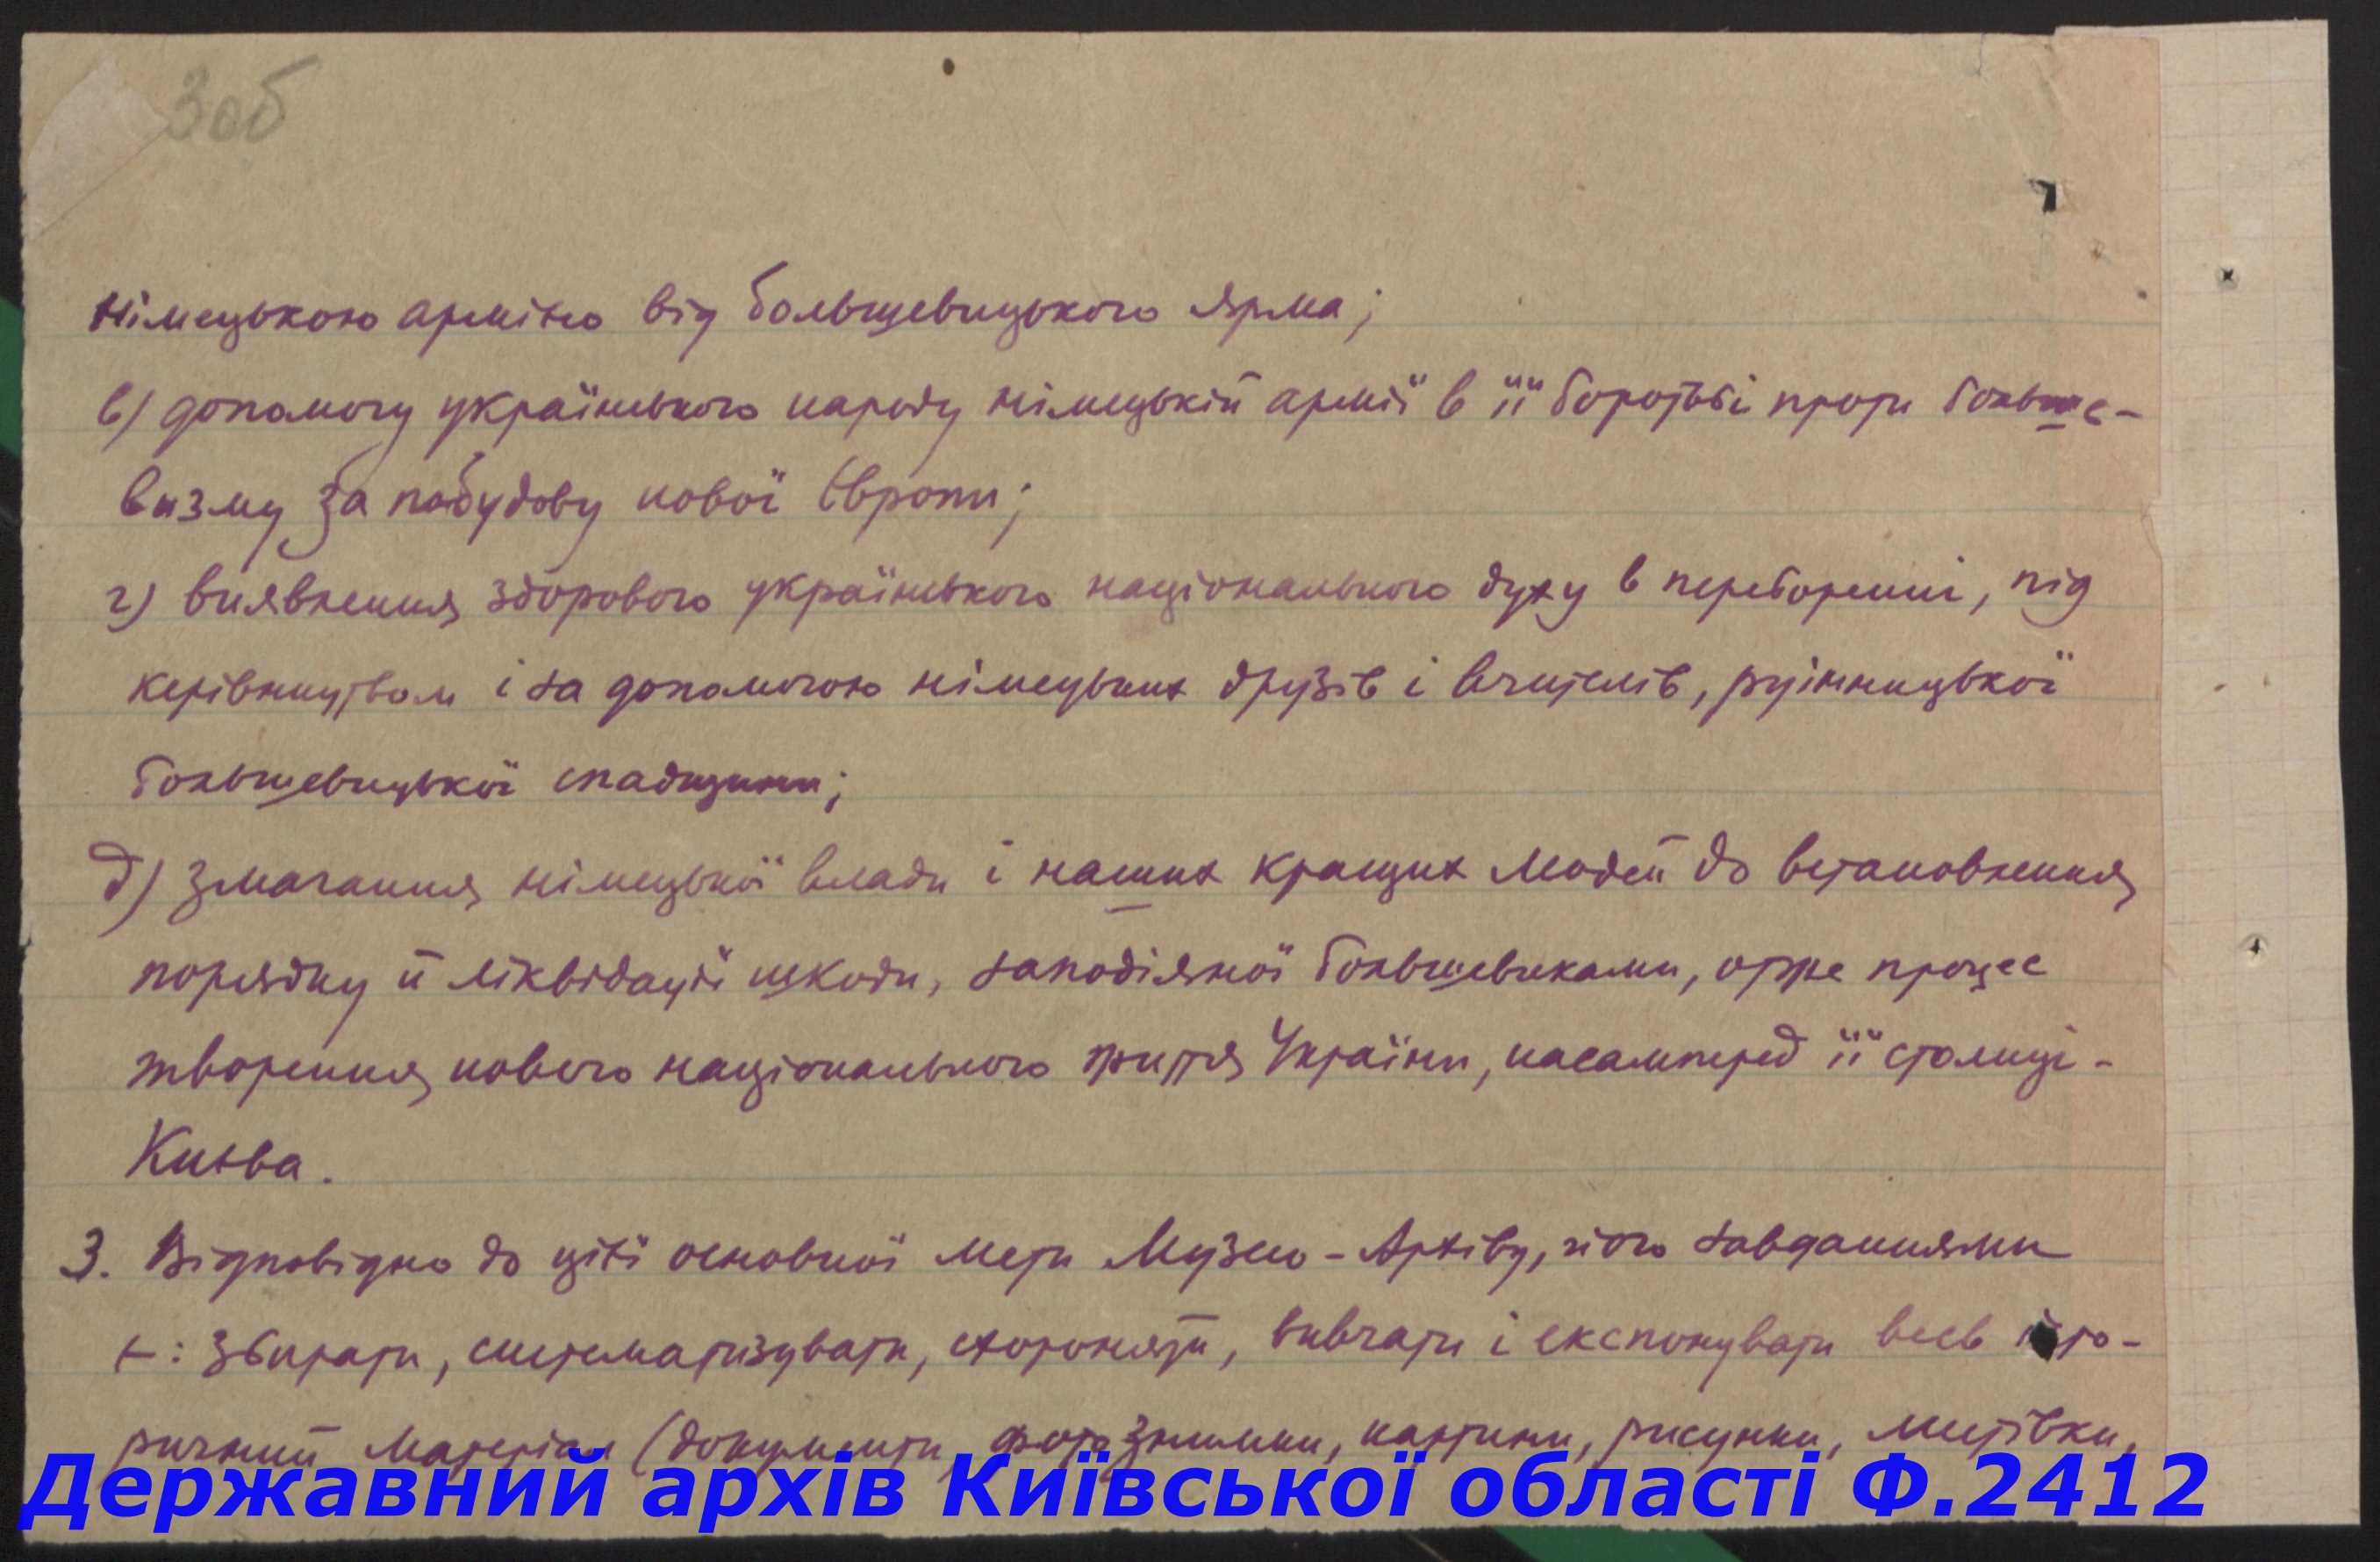 3об
німецькою армією від большевицького ярма;
в) допомогу українського народу німецькій армії в її боротьбі проти больше-
визму за побудову нової Европи;
г) виявлення здорового українського національного духу в переборенні, під
керівництвом і за допомогою німецьких друзів і вчителів, руїнницької
большевицької спадщини;
д) змагання німецької влади і наших кращих людей до встановлення
порядку й ліквідації шкоди, заподіяної большевиками, отже процес
творення нового національного життя України, насамперед її столиці -
Києва.
3. Відповідно до цієї основної мети Музею-Архіву, його завданнями
є: збирати, систематизувати, схороняти, вивчати і експонувати весь істо-
ричний матеріал (документи, фотознимки, картини, рисунки,
Державний архів Київської області Ф.2412